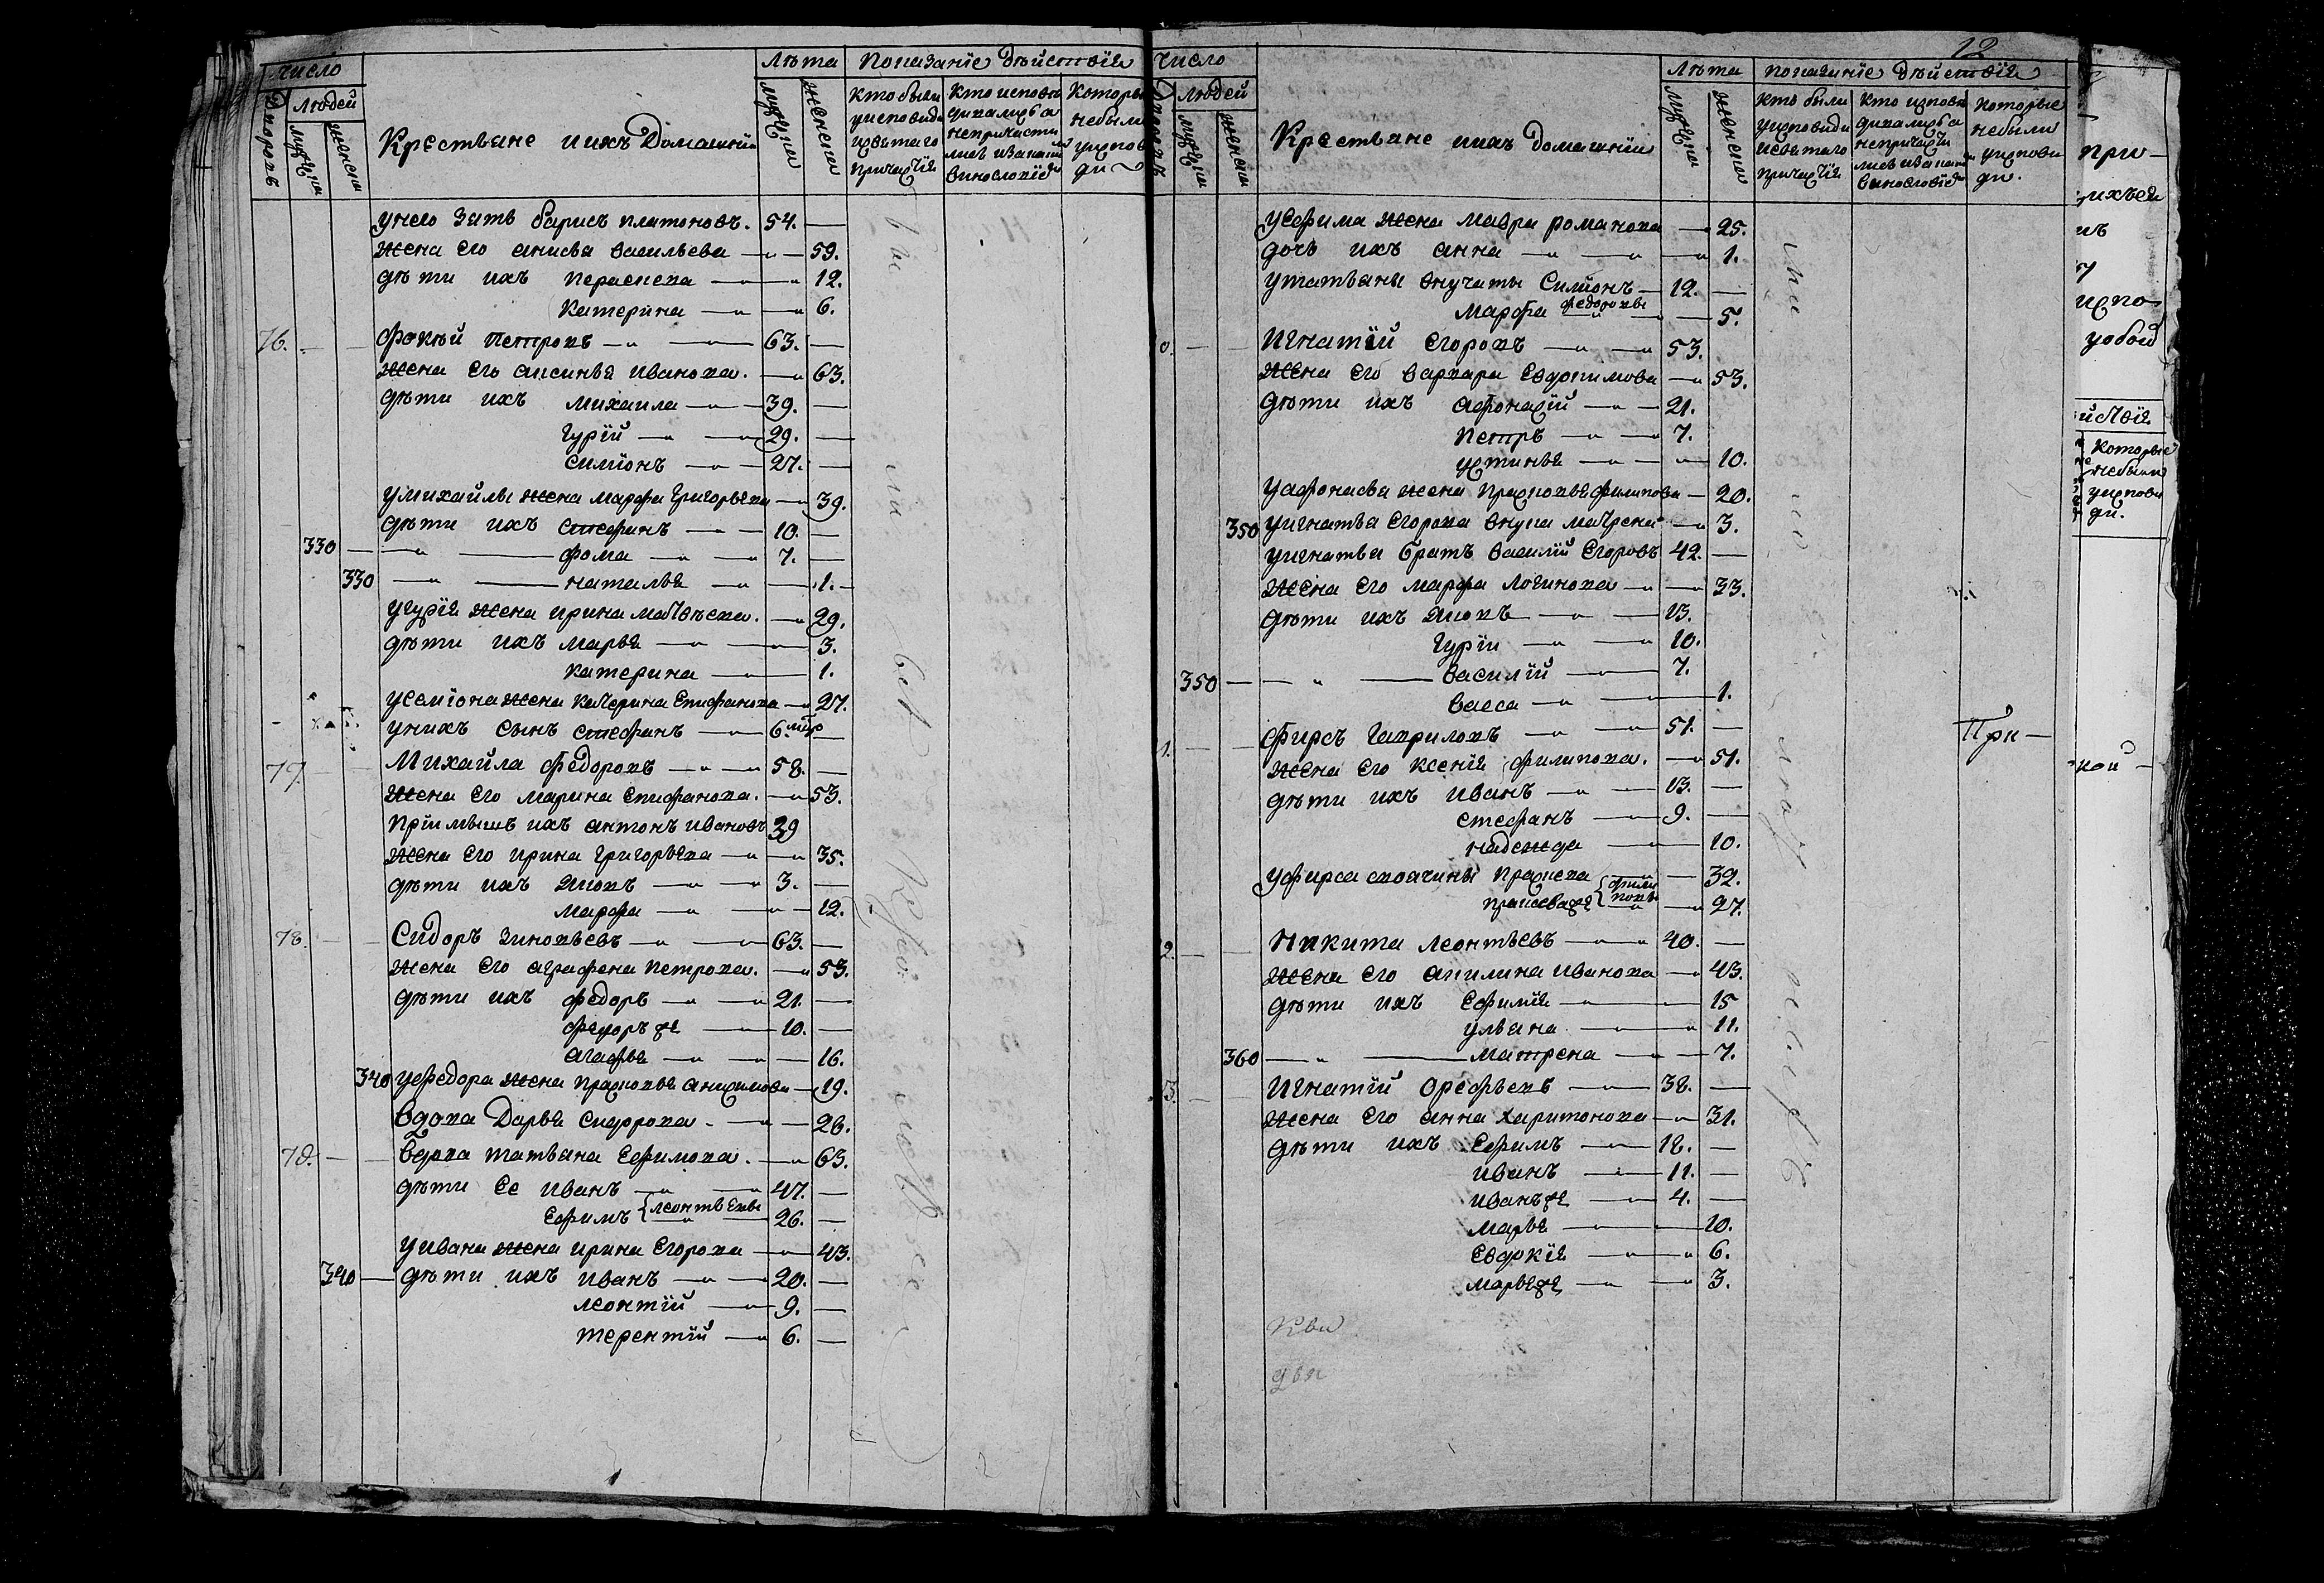 число
Дворовъ
людей
мужеска
женска
Крестьяне и ихъ Домашнїи
Лѣта
мужеска
женска
Показанїе Дѣйствїя
кто были
у исповеди
и святаго
причастїя
кто исповѣ
дывался а
не причасти
лись и за каким
винословїемъ
Которые
не были
у испове
ди
у него зять барисъ платоновъ. 54. —
жена его анисья васильева — 59.
дѣти ихъ праскева — 12.
катерина — 6.
76. — — фокѣй петровъ — 63. —
жена его аксинья иванова. — 63.
дѣти ихъ михаила — 39. —
гурїй — 29. —
симїонъ — 27. —
у михайлы жена марфа григорьева — 39.
дѣти ихъ стефанъ — 10. —
330 — фома — 7. —
330 — наталья — 1. —
у гурїя жена ирина матвѣева. — 29.
дѣти ихъ марья — 3.
катерина — 1.
у семїона жена катерина епифанова — 27.
у нихъ сынъ стефанъ — 6. мцъ —
77. — — Михайла федоровъ — 58. —
жена его марина епифанова. — 53.
прїимышъ ихъ антонъ ивановъ 39
жена его ирина григорьева — 35.
дѣти ихъ яковъ — 3. —
марфа — 12.
78. — — Сидоръ зиновьевъ — 63. —
жена его аграфена петрова. — 53.
дѣти ихъ федоръ — 21. —
федоръ же — 10. —
агафья — 16.
340 у федора жена прасковья анисимова — 19.
вдова Дарья сидорова. — 26.
79. — — вдова татьяна ефимова. — 63.
дѣти ее иванъ — 47. —
ефимъ { леонтьевы — 26. —
у ивана жена ирина егорова — 43.
340 — дѣти ихъ иванъ — 20. —
леонтїй — 9. —
терентїй — 6. —
12
число
Дворовъ
людей
мужеска
женска
Крестьяне и ихъ домашнїи
Лѣта
мужеска
женска
показанїе дѣйствїя
кто были
у исповеди
и святаго
причастїя
кто испове
дывался а
не причасти
лись и за каким
винословїемъ
которые
не были
у испове
ди.
у ефима жена мавра романова — 25.
дочь ихъ анна — 1.
у татьяны внучаты Симїонъ — 12. —
марфа федоровы — 5.
0. — — Игнатїй егоровъ — 53.
жена его варвара евдокимова — 53.
дѣти ихъ афонасїй — 21.
петръ — 7.
устинья — 10.
у афонасья жена прасковья филипова — 20.
350 у игнатья егорова внука матрена — 3.
у игнатья братъ василїй егоровъ 42. —
жена его марфа логинова — 33.
дѣти ихъ яковъ — 13.
гурїй — 10.
350 — василїй — 7.
васса — 1.
1. — — фирсъ гавриловъ — 51. —
жена его ксенїя филипова. — 51.
дѣти ихъ иванъ — 13. —
стефанъ — 9. —
надежда — 10.
у фирса своячины праскева — 32.
праскева же { филиповы — 27.
При —
2. — — никита леонтьевъ — 40. —
жена его акилина иванова — 43.
дѣти ихъ ефимїя — 15
ульяна — 11.
360 — матрена — 7.
3. — — игнатїй орефьевъ — 38. —
жена его анна харитонова — 31.
дѣти ихъ ефимъ — 12. —
иванъ — 11. —
иванъ же — 4. —
марья — 10.
евдокїя — 6.
марья же — 3.
при —
испо
которые
не были
у испове
ди.